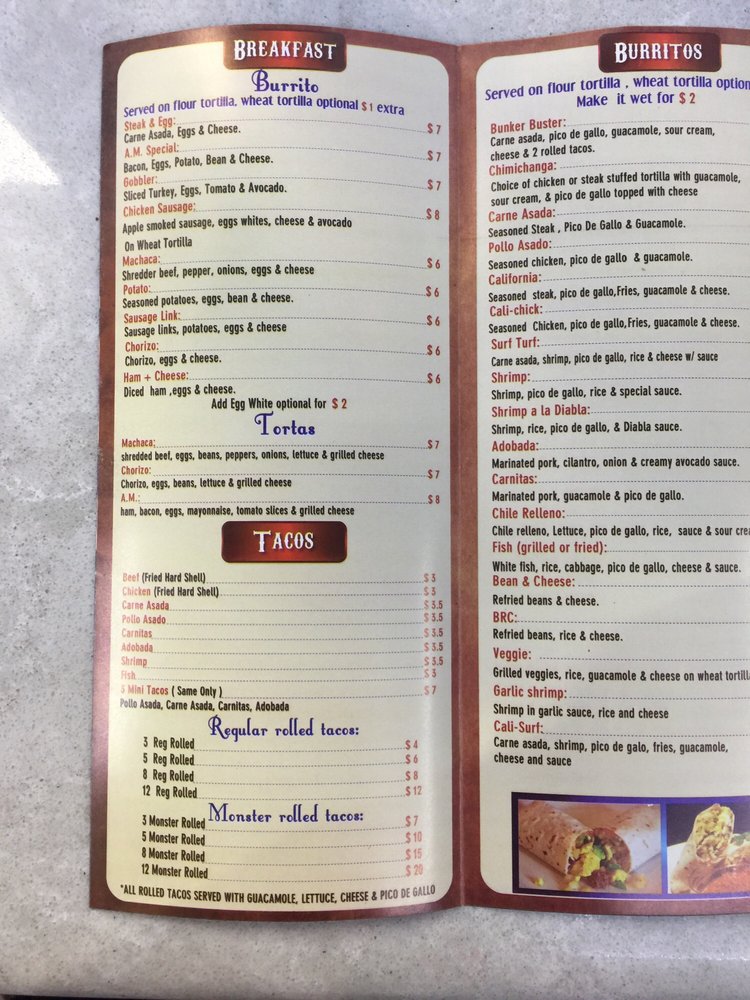 BREAKFAST
Burrito
Served on flour tortilla, wheat tortilla optional $1 extra
Steak & Egg: $7
Carne Asada, Eggs & Cheese.
A.M. Special: $7
Bacon, Eggs, Potato, Bean & Cheese.
Gobbler: $7
Sliced Turkey, Eggs, Tomato & Avocado.
Chicken Sausage: $8
Apple smoked sausage, eggs whites, cheese & avocado
On Wheat Tortilla
Machaca: $6
Shredder beef, pepper, onions, eggs & cheese
Potato: $6
Seasoned potatoes, eggs, bean & cheese.
Sausage Link: $6
Sausage links, potatoes, eggs & cheese
Chorizo: $6
Chorizo, eggs & cheese.
Ham + Cheese: $6
Diced ham ,eggs & cheese.
Add Egg White optional for $2
Tortas
Machaca: $7
shredded beef, eggs, beans, peppers, onions, lettuce & grilled cheese
Chorizo: $7
Chorizo, eggs, beans, lettuce & grilled cheese
A.M.: $8
ham, bacon, eggs, mayonnaise, tomato slices & grilled cheese
TACOS
Beef (Fried Hard Shell) $3
Chicken (Fried Hard Shell) $3
Carne Asada $3.5
Pollo Asado $3.5
Carnitas $3.5
Adobada $3.5
Shrimp $3.5
Fish $3
Mini Tacos ( Same Only ) $7
Pollo Asada, Carne Asada, Carnitas, Adobada
Regular rolled tacos:
3 Reg Rolled $4
5 Reg Rolled $6
8 Reg Rolled $8
12 Reg Rolled $12
Monster rolled tacos:
3 Monster Rolled $7
5 Monster Rolled $10
8 Monster Rolled $15
12 Monster Rolled $20
*ALL ROLLED TACOS SERVED WITH GUACAMOLE, LETTUCE, CHEESE & PICO DE GALLO
BURRITOS
Served on flour tortilla , wheat tortilla option
Make it wet for $2
Bunker Buster:
Carne asada, pico de gallo, guacamole, sour cream,
cheese & 2 rolled tacos.
Chimichanga:
Choice of chicken or steak stuffed tortilla with guacamole,
sour cream, & pico de gallo topped with cheese
Carne Asada:
Seasoned Steak , Pico De Gallo & Guacamole.
Pollo Asado:
Seasoned chicken, pico de gallo & guacamole.
California:
Seasoned steak, pico de gallo,Fries, guacamole & cheese.
Cali-chick:
Seasoned Chicken, pico de gallo,Fries, guacamole & cheese.
Surf Turf:
Carne asada, shrimp, pico de gallo, rice & cheese w/ sauce
Shrimp:
Shrimp, pico de gallo, rice & special sauce.
Shrimp a la Diabla:
Shrimp, rice, pico de gallo, & Diabla sauce.
Adobada:
Marinated pork, cilantro, onion & creamy avocado sauce.
Carnitas:
Marinated pork, guacamole & pico de gallo.
Chile Relleno:
Chile relleno, Lettuce, pico de gallo, rice, sauce & sour crea
Fish (grilled or fried):
White fish, rice, cabbage, pico de gallo, cheese & sauce.
Bean & Cheese:
Refried beans & cheese.
BRC:
Refried beans, rice & cheese.
Veggie:
Grilled veggies, rice, guacamole & cheese on wheat tortill
Garlic shrimp:
Shrimp in garlic sauce, rice and cheese
Cali-Surf:
Carne asada, shrimp, pico de galo, fries, guacamole,
cheese and sauce